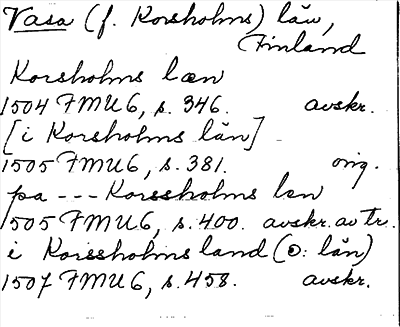 Vasa (f. Korsholms) län,
Finland
Korsholms læn
1504 FMU6, s. 346. avskr.
[i Korsholms län]
1505 FMU6, s. 381. orig.
pa --- Korssholms len
1505 FMU6, s. 400. avskr. av tr.
i Korssholms land (ɔ: län)
1507 FMU6, s. 458. avskr.